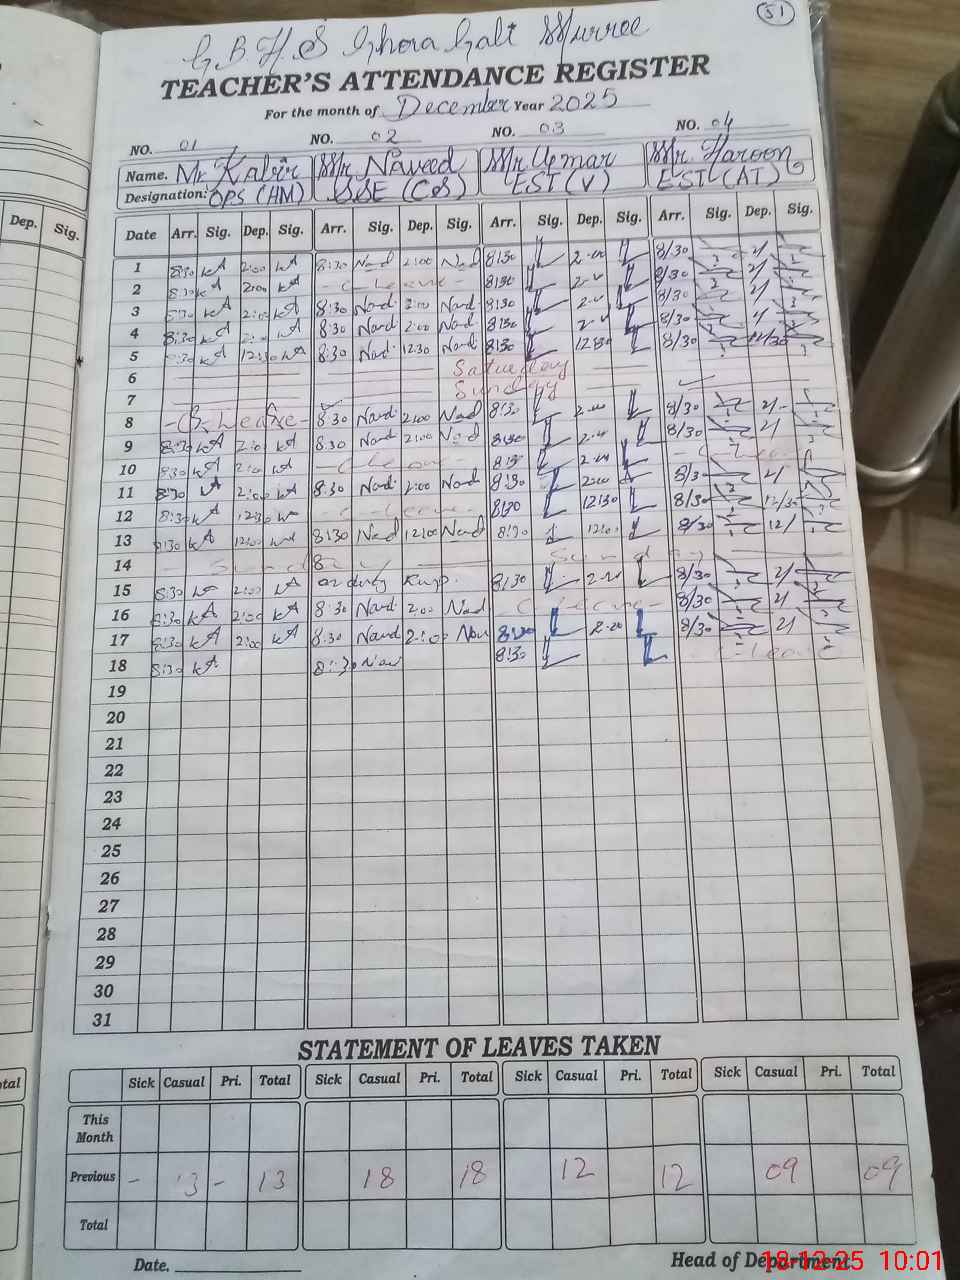 51
G B H S Ghora Gali Murree
TEACHER'S ATTENDANCE REGISTER
For the month of December Year 2025
NO. 01 NO. 02 NO. 03 NO. 04
Name. Mr Kabir Mr Naveed Mr Umar Mr Haroon
Designation: OPS (HM) SSE (CS) EST (V) EST (AT)
Dep. Sig.
Date Arr. Sig. Dep. Sig. Arr. Sig. Dep. Sig. Arr. Sig. Dep. Sig. Arr. Sig. Dep. Sig.
1 8:30 KA 2:00 KA 8:30 2:00 8:30 2.00 8/30 2/
2 8:30 KA 2:00 KA - C-Leave - 8:30 8/30 2/
3 KA 2:00 KA 8:30 2:00 8:30 8/30 2/
4 8:30 KA KA 8:30 2:00 8:30 8/30
5 8:30 KA 12:30 KA 8:30 12:30 8:30 12:30 8/30 12/30
6 Saturday
7 Sunday
8 - C-Leave - 8:30 2:00 8:30 2.00 8/30 2/
9 8:30 KA 2:00 KA 8:30 2:00 8:30 8/30 2/
10 8:30 KA 2:00 KA - C-Leave - 8:30 2.00 - C-Leave
11 8:30 KA 2:00 KA 8:30 2:00 8:30 2:00 8/3 2/
12 8:30 KA 12:30 - C-Leave - 8:30 12:30 8/30 12/30
13 8:30 KA 12:00 8:30 12:00 8:30 12:00 8/30 12/
14 Sunday Sunday
15 8:30 2:00 KA on duty 8:30 8/30 2/
16 8:30 KA 2:00 KA 8:30 2:00 - C-Leave - 8/30 2/
17 8:30 KA 2:00 KA 8:30 2:00 2.00 8/30 2/
18 8:30 KA 8:30 8:30 - C-Leave
19
20
21
22
23
24
25
26
27
28
29
30
31
STATEMENT OF LEAVES TAKEN
Sick Casual Pri. Total Sick Casual Pri. Total Sick Casual Pri. Total Sick Casual Pri. Total
This
Month
Previous - 13 - 13 18 18 12 12 09 09
Total
Date. Head of Department
18-12-25 10:01